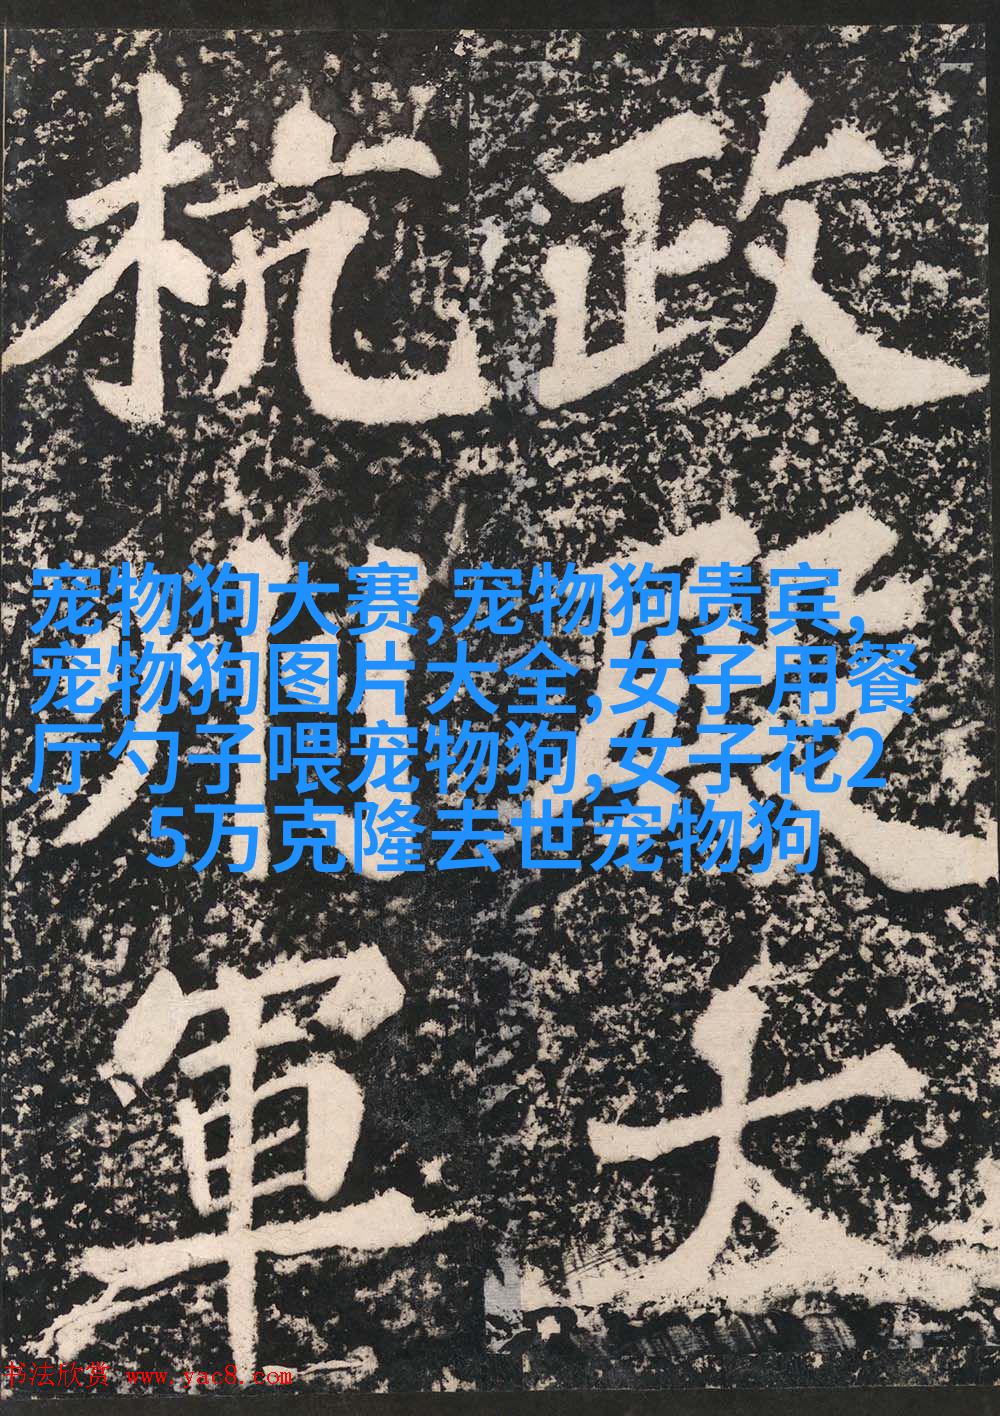 政殿大
杭州軍
宠物狗大赛,宠物狗贵宾,
宠物狗图片大全,女子用餐
厅勺子喂宠物狗,女子花2
5万克隆去世宠物狗
书法欣赏 www.yac8.com